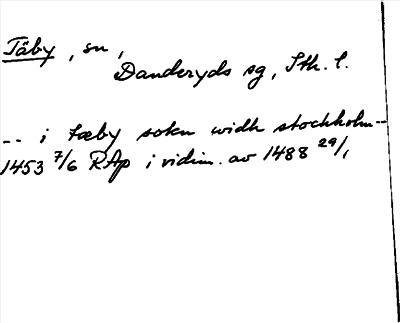 Täby, sn,
Danderyds sg, Sth. l.
-- i tæby sokn widh stockholm--
1453 7/6 RAp i vidim. av 1488 29/1